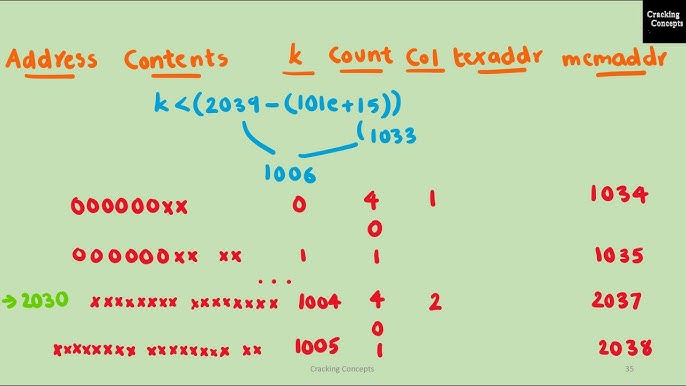 Cracking
Concepts
Address Contents k Count Col texaddr memaddr
k<(2039-(101e+15))
1033
1006
000000xx 0 4 1 1034
0
000000xx xx 1 1 1035
...
→2030 xxxxxxxx xxxxxxxx 1004 4 2 2037
0
xxxxxxxx xxxxxxxx xx 1005 1 2038
Cracking Concepts 35